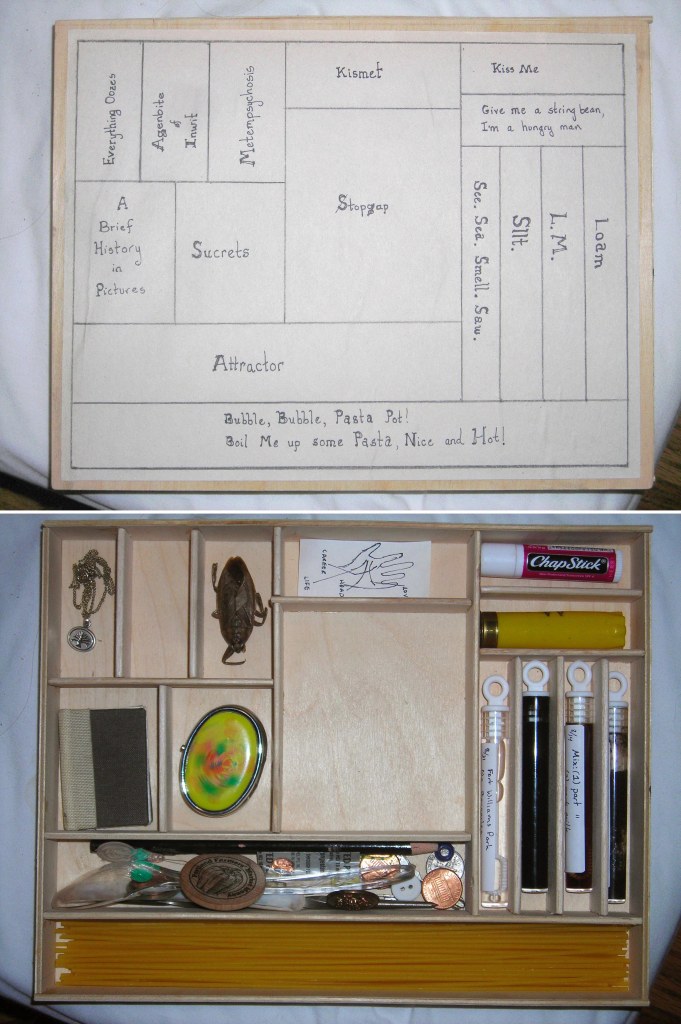 Everything Oozes
Agenbite
of
Inwit
Metempsychosis
Kismet
Kiss Me
Give me a string bean,
I'm a hungry man
A
Brief
History
in
Pictures
Sucrets
Stopgap
See. Sea. Smell. Saw.
Silt.
L.M.
Loam
Attractor
Bubble, Bubble, Pasta Pot!
Boil Me up some Pasta, Nice and Hot!
CAREER
LIFE
HEAD
ChapStick
Fort Williams Park
Mix: (1) part